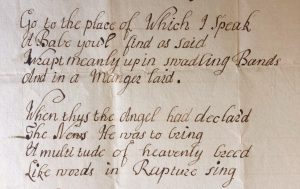 Go to the place of Which I Speak
A Babe youl find as said
Wrapt meanly up in swadling Bands
And in a Manger laid.
When thys the Angel had declard
The News He was to bring
A multitude of heavenly breed
Like words in Rapture sing